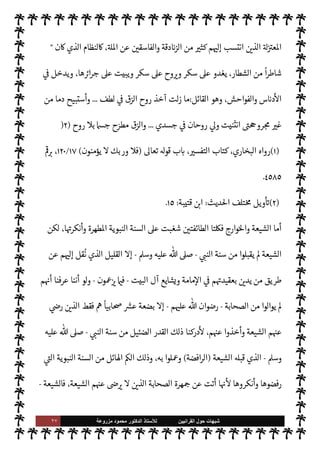 المعتزلة الذين انتسب إليهم كثير من الزنادقة والفاسقين عن الملة، كالنظام الذي كان "
شاطراً من الشطار، يغدو على سكر ويروح على سكر ويبيت على جرائرها، ويدخل في
الأدناس والفواحش، وهو القائل:ما زلت آخذ روح الزق في لطف ... وأستبيح دما من
غير مجروححتى انثنيت ولي روحان في جسدي ... والزق مطرح جسم بلا روح (٢(
(١)رواه البخاري، كتاب التفسير، باب قوله تعالى (فلا وربك لا يؤمنون) ١٢٠/١٧، برقم
٤٥٨٥.
(٢)تأويل مختلف الحديث: ابن قتيبة: ١٥.
أما الشيعة والخوارج فكلتا الطائفتين شغبت على السنة النبوية المطهرة وأنكرتها، لكن
الشيعة لم يقبلوا من سنة النبي - صلى الله عليه وسلم - إلا القليل الذي نُقل إليهم عن
طريق من يدين بعقيدتهم في الإمامة ويشايع آل البيت - فيما يزعمون - ولو أننا عرفنا أنهم
لم يوالوا من الصحابة - رضوان الله عليهم - إلا بضعة عشر صحابياً هم فقط الذين رضي
عنهم الشيعة وأخذوا عنهم، لأدركنا ذلك القدر الضئيل من سنة النبي - صلى الله عليه
وسلم - الذي قبله الشيعة (الرافضة) وعملوا به، وذلك الكم الهائل من السنة النبوية التي
رفضوها وأنكروها لأنها أتت عن جمهرة الصحابة الذين لا يرضى عنهم الشيعة، فالشيعة -
شبهات حول القرآنيين للأستاذ الدكتور محمود مزروعة ٢٧